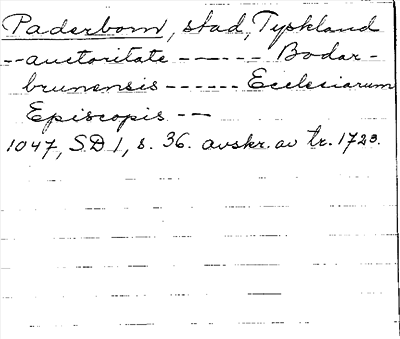 Paderborn, stad, Tyskland
-- auctoritate ----- Bodar-
brunensis ------ Ecclesiarum
Episcopis --
1047, SD 1, s. 36. avskr. av tr. 1723.